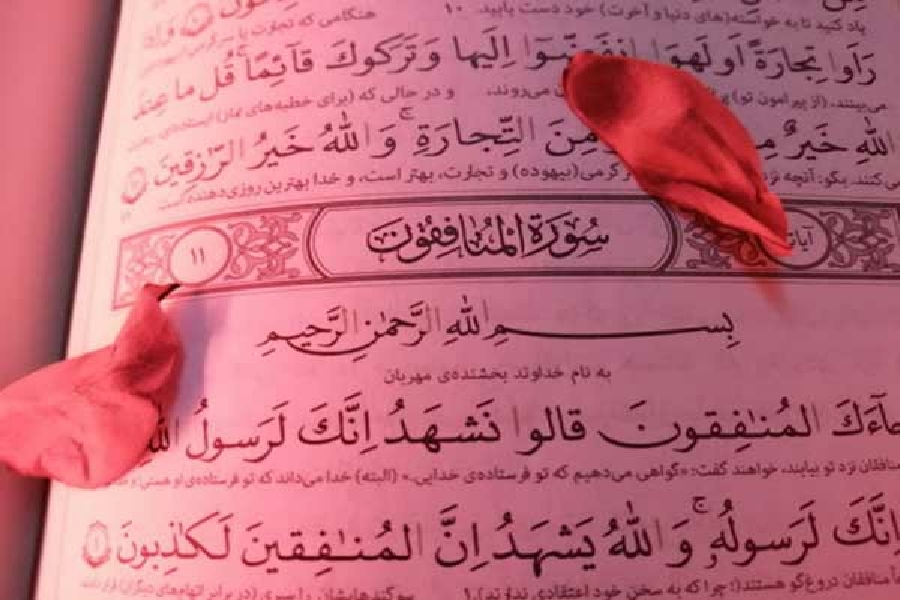 یاد کنید تا به خواسته(های دنیا و آخرت) خود دست یابید. ۱۰ هنگامی که تجارت یا
رَاَوا تِجارَةً اَو لَهوَا انفَضّوا اِلَیها وَ تَرَکوكَ قآئِمًا قُل ما عِندَ
می‌بینند، (از پیرامون تو) می‌روند، و در حالی که (برای خطبه‌های نماز) ایستاده‌ای
اللهِ خَیرٌ مِنَ التِّجارَةِ وَ اللهُ خَیرُ الرّٰزِقینَ
می کنند. بگو: آنچه نزد گرمی(بیهوده) و تجارت، بهتر است، و خدا بهترین روزی‌دهنده است.
۱۱ سُورَةُ الْمُنَافِقُونَ آیات
بِسمِ اللهِ الرَّحمٰنِ الرَّحیمِ
به نام خداوند بخشنده‌ی مهربان
المُنٰفِقونَ قالوا نَشهَدُ اِنَّكَ لَرَسولُ
منافقان نزد تو بیایند، خواهند گفت: «گواهی می‌دهیم که تو فرستاده‌ی خدایی.» (البته) خدا می‌داند که تو فرستاده‌ی او هستی
اِنَّكَ لَرَسولُهُ وَ اللهُ یَشهَدُ اِنَّ المُنٰفِقینَ لَکٰذِبونَ ۱
منافقان دروغ‌گو هستند(؛ چرا که به سخن خود اعتقادی ندارند). ۱ سوگندهایشان را سپری (در برابر اتهام‌های دیگران) قرار